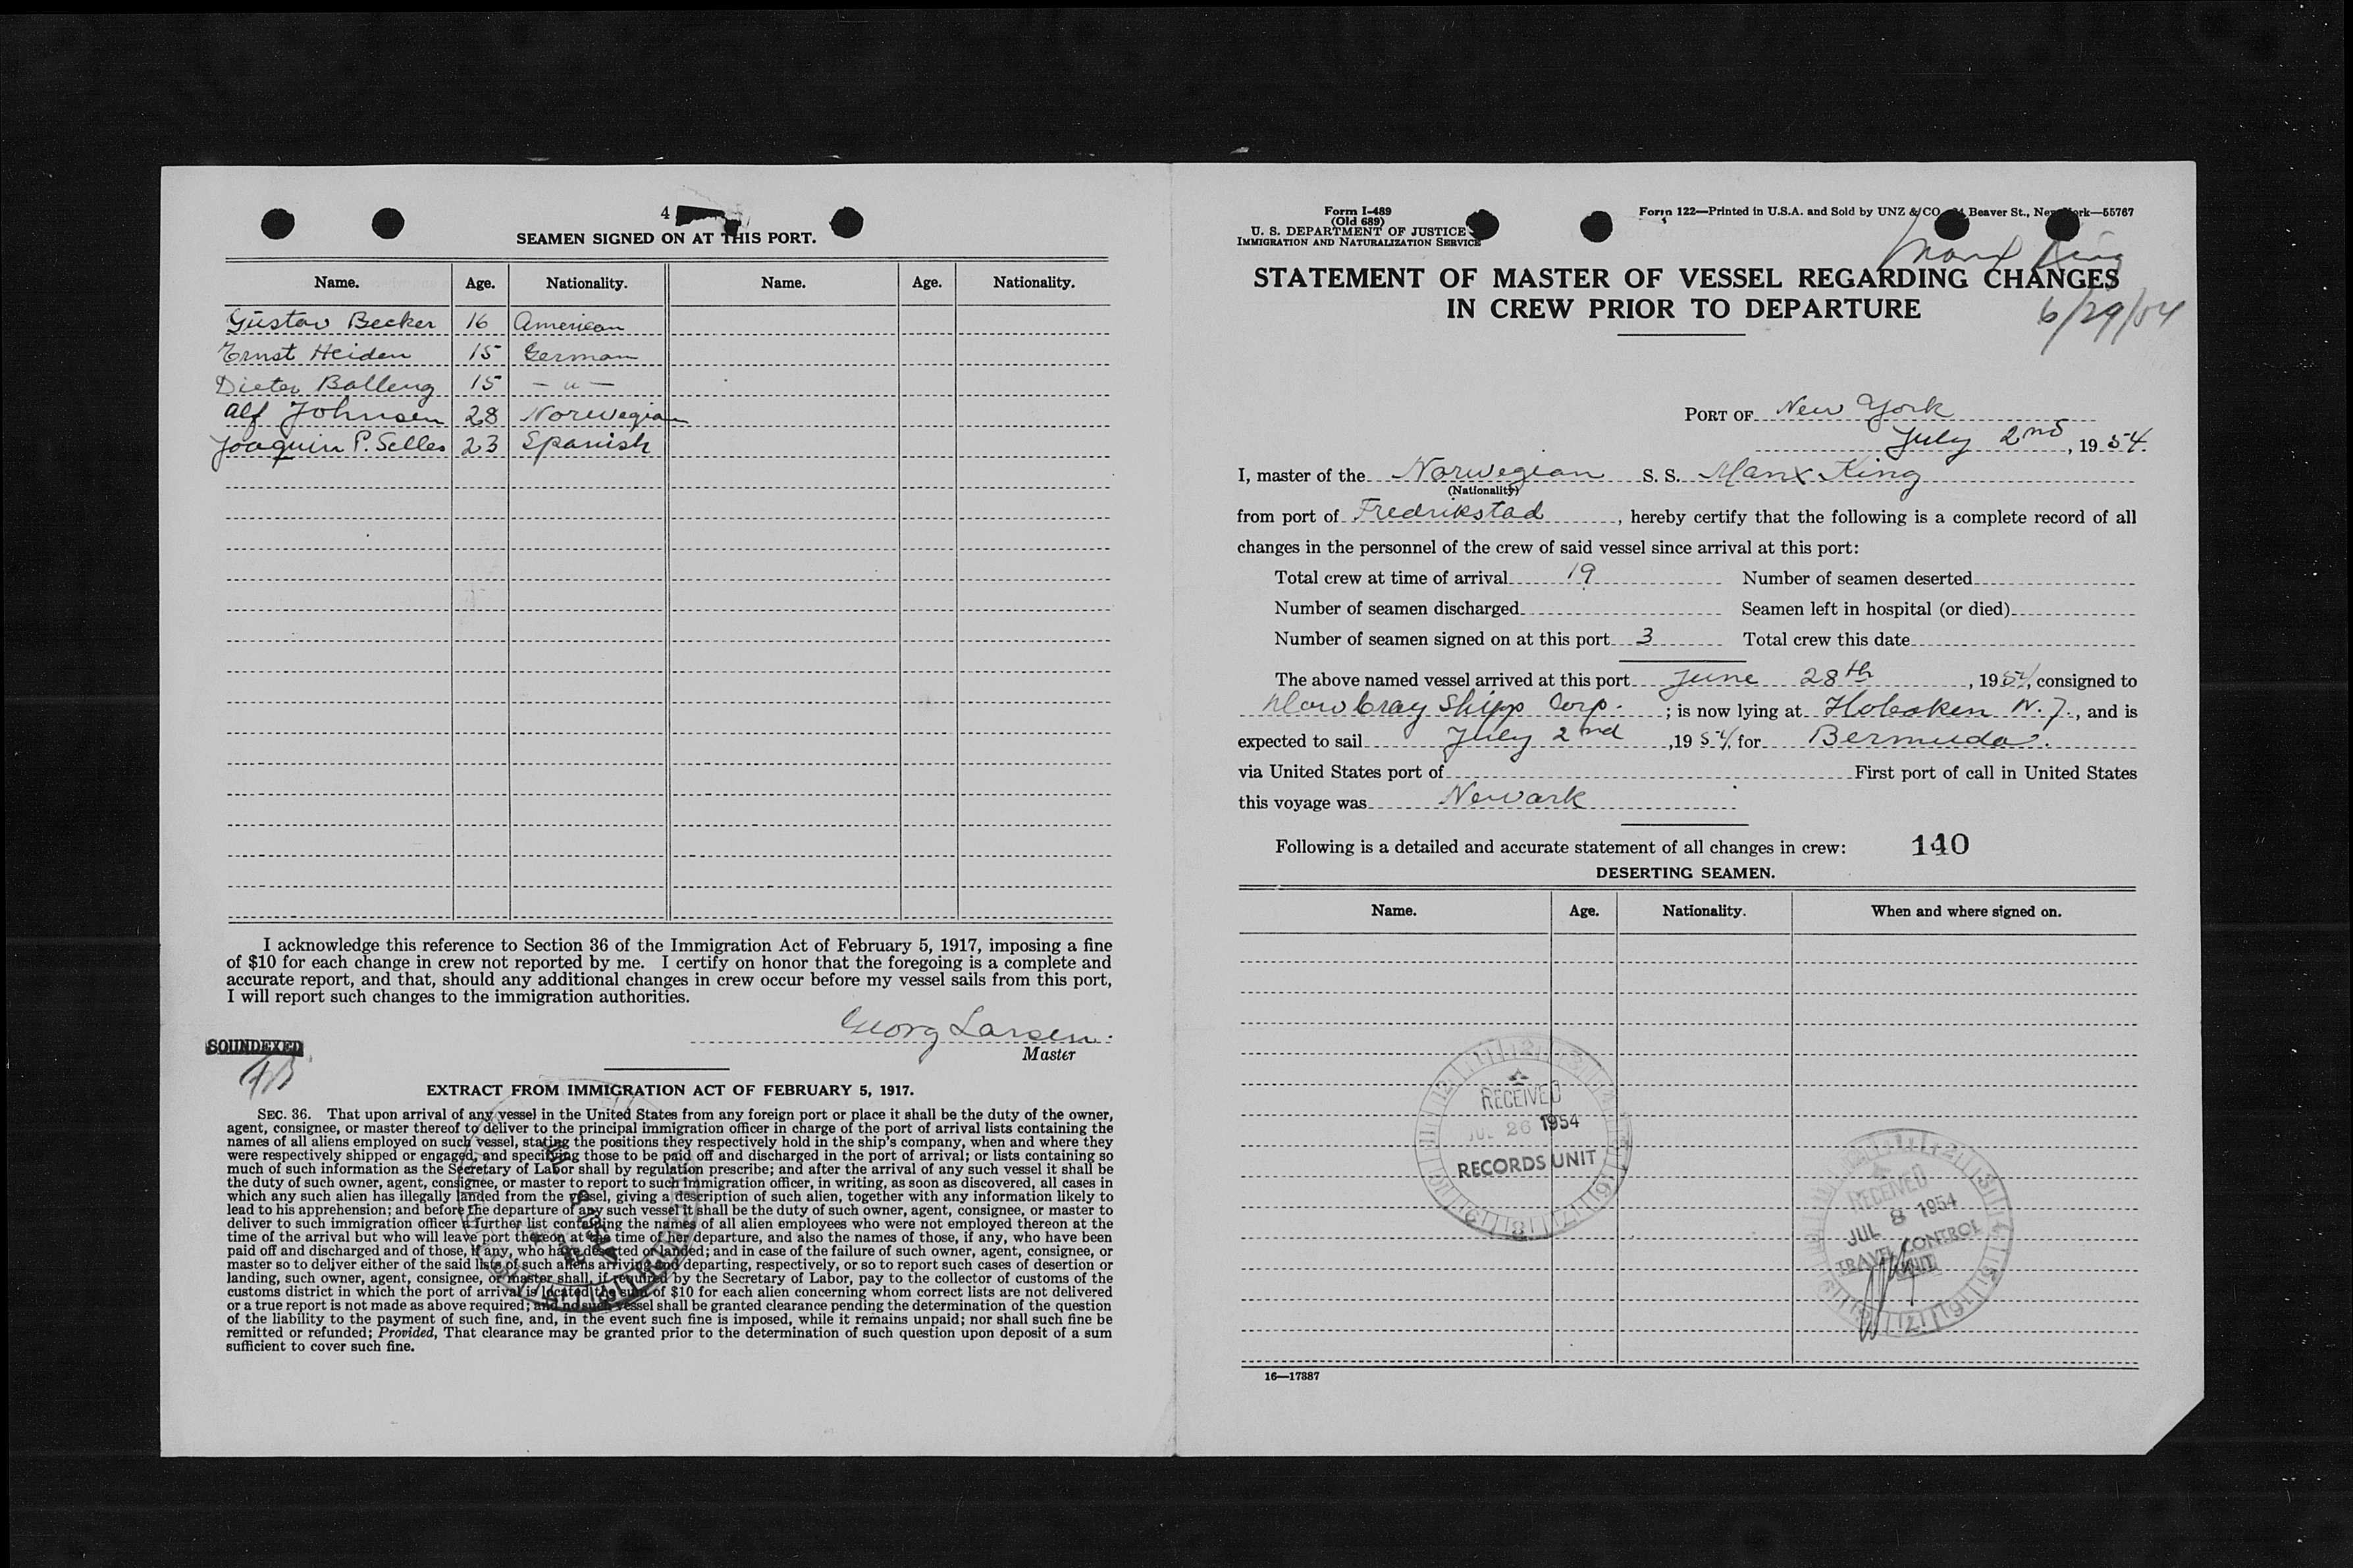 4
SEAMEN SIGNED ON AT THIS PORT.
Name. Age. Nationality. Name. Age. Nationality.
Gustav Becker 16 American
Ernst Heiden 15 German
Dieter Balleng 15 — " —
Alf Johnsen 28 Norwegian
Joaquin P. Selles 23 Spanish
I acknowledge this reference to Section 36 of the Immigration Act of February 5, 1917, imposing a fine
of $10 for each change in crew not reported by me. I certify on honor that the foregoing is a complete and
accurate report, and that, should any additional changes in crew occur before my vessel sails from this port,
I will report such changes to the immigration authorities.
Georg Larsen.
Master
SOUNDEXED
EXTRACT FROM IMMIGRATION ACT OF FEBRUARY 5, 1917.
SEC. 36. That upon arrival of any vessel in the United States from any foreign port or place it shall be the duty of the owner,
agent, consignee, or master thereof to deliver to the principal immigration officer in charge of the port of arrival lists containing the
names of all aliens employed on such vessel, stating the positions they respectively hold in the ship's company, when and where they
were respectively shipped or engaged, and specifying those to be paid off and discharged in the port of arrival; or lists containing so
much of such information as the Secretary of Labor shall by regulation prescribe; and after the arrival of any such vessel it shall be
the duty of such owner, agent, consignee, or master to report to such immigration officer, in writing, as soon as discovered, all cases in
which any such alien has illegally landed from the vessel, giving a description of such alien, together with any information likely to
lead to his apprehension; and before the departure of any such vessel it shall be the duty of such owner, agent, consignee, or master to
deliver to such immigration officer a further list containing the names of all alien employees who were not employed thereon at the
time of the arrival but who will leave port thereon at the time of her departure, and also the names of those, if any, who have been
paid off and discharged and of those, if any, who have deserted or landed; and in case of the failure of such owner, agent, consignee, or
master so to deliver either of the said lists of such aliens arriving and departing, respectively, or so to report such cases of desertion or
landing, such owner, agent, consignee, or master shall, if required by the Secretary of Labor, pay to the collector of customs of the
customs district in which the port of arrival is located the sum of $10 for each alien concerning whom correct lists are not delivered
or a true report is not made as above required; and no such vessel shall be granted clearance pending the determination of the question
of the liability to the payment of such fine, and, in the event such fine is imposed, while it remains unpaid; nor shall such fine be
remitted or refunded; Provided, That clearance may be granted prior to the determination of such question upon deposit of a sum
sufficient to cover such fine.
Form I-489
(Old 689)
U. S. DEPARTMENT OF JUSTICE
IMMIGRATION AND NATURALIZATION SERVICE
Form 122—Printed in U.S.A. and Sold by UNZ & CO Beaver St., New York—55767
Manx King
6/29/54
STATEMENT OF MASTER OF VESSEL REGARDING CHANGES
IN CREW PRIOR TO DEPARTURE
PORT OF New York
July 2nd, 1954.
I, master of the Norwegian S. S. Manx King
(Nationality)
from port of Fredrikstad, hereby certify that the following is a complete record of all
changes in the personnel of the crew of said vessel since arrival at this port:
Total crew at time of arrival 19 Number of seamen deserted
Number of seamen discharged Seamen left in hospital (or died)
Number of seamen signed on at this port 3 Total crew this date
The above named vessel arrived at this port June 28th, 1954, consigned to
Mowbray Shipp Corp. ; is now lying at Hoboken N. J., and is
expected to sail July 2nd, 1954, for Bermuda.
via United States port of First port of call in United States
this voyage was Newark
Following is a detailed and accurate statement of all changes in crew: 140
DESERTING SEAMEN.
Name. Age. Nationality. When and where signed on.
RECEIVED
JUL 26 1954
RECORDS UNIT
RECEIVED
JUL 8 1954
TRAVEL CONTROL
UNIT
16—17887